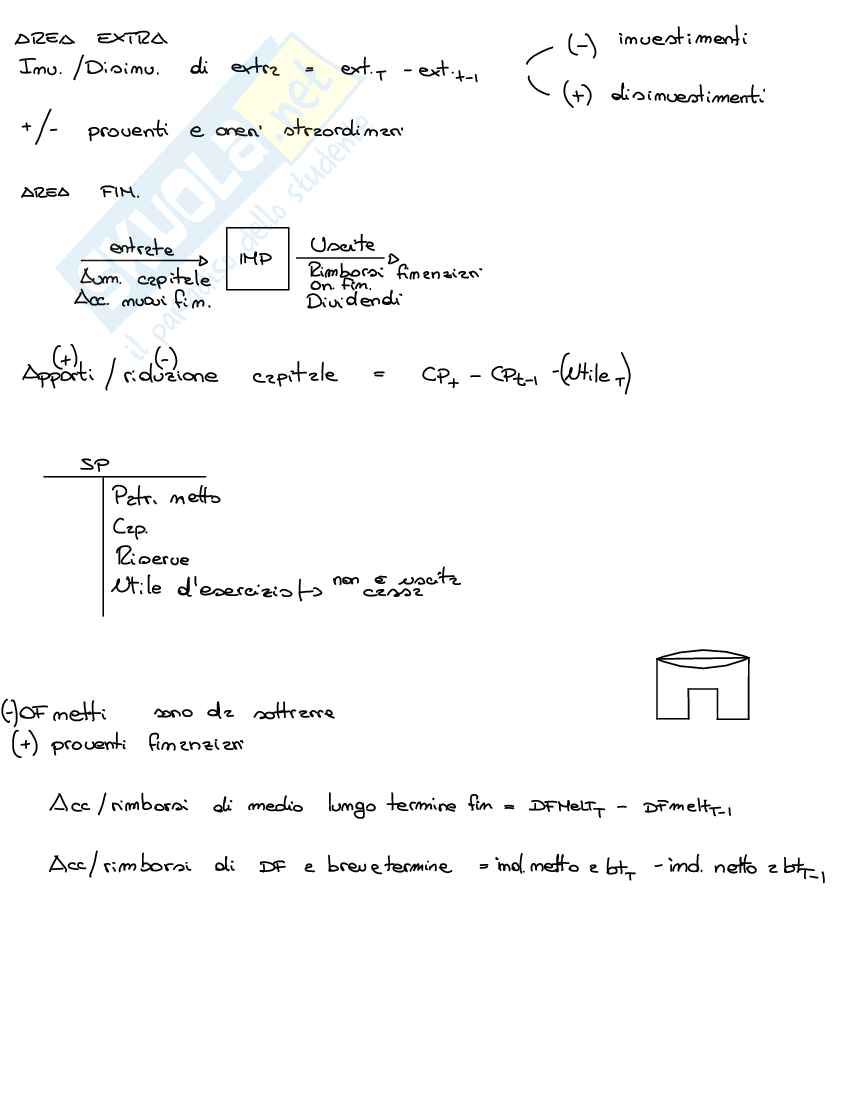 AREA EXTRA
Inv. /Disinv. di extra = ext.T - ext.t-1
(-) investimenti
(+) disinvestimenti
+/- proventi e oneri straordinari
AREA FIN.
entrate
IMP
Uscite
Aum. capitale
Acc. nuovi fin.
Rimborsi finanziari
on. fin.
Dividendi
(+) (-)
Apporti / riduzione capitale = CPt - CPt-1 -(Utile T)
SP
Patr. netto
Cap.
Riserve
Utile d'esercizio → non è uscita
cassa
(-)OF netti sono da sottrarre
(+) proventi finanziari
Acc/rimborsi di medio lungo termine fin = DFMeLTT - DFmeltT-1
Acc/rimborsi di DF a breve termine = ind. netto a btT - ind. netto a btT-1
SKUOLA.net
il paradiso dello studente